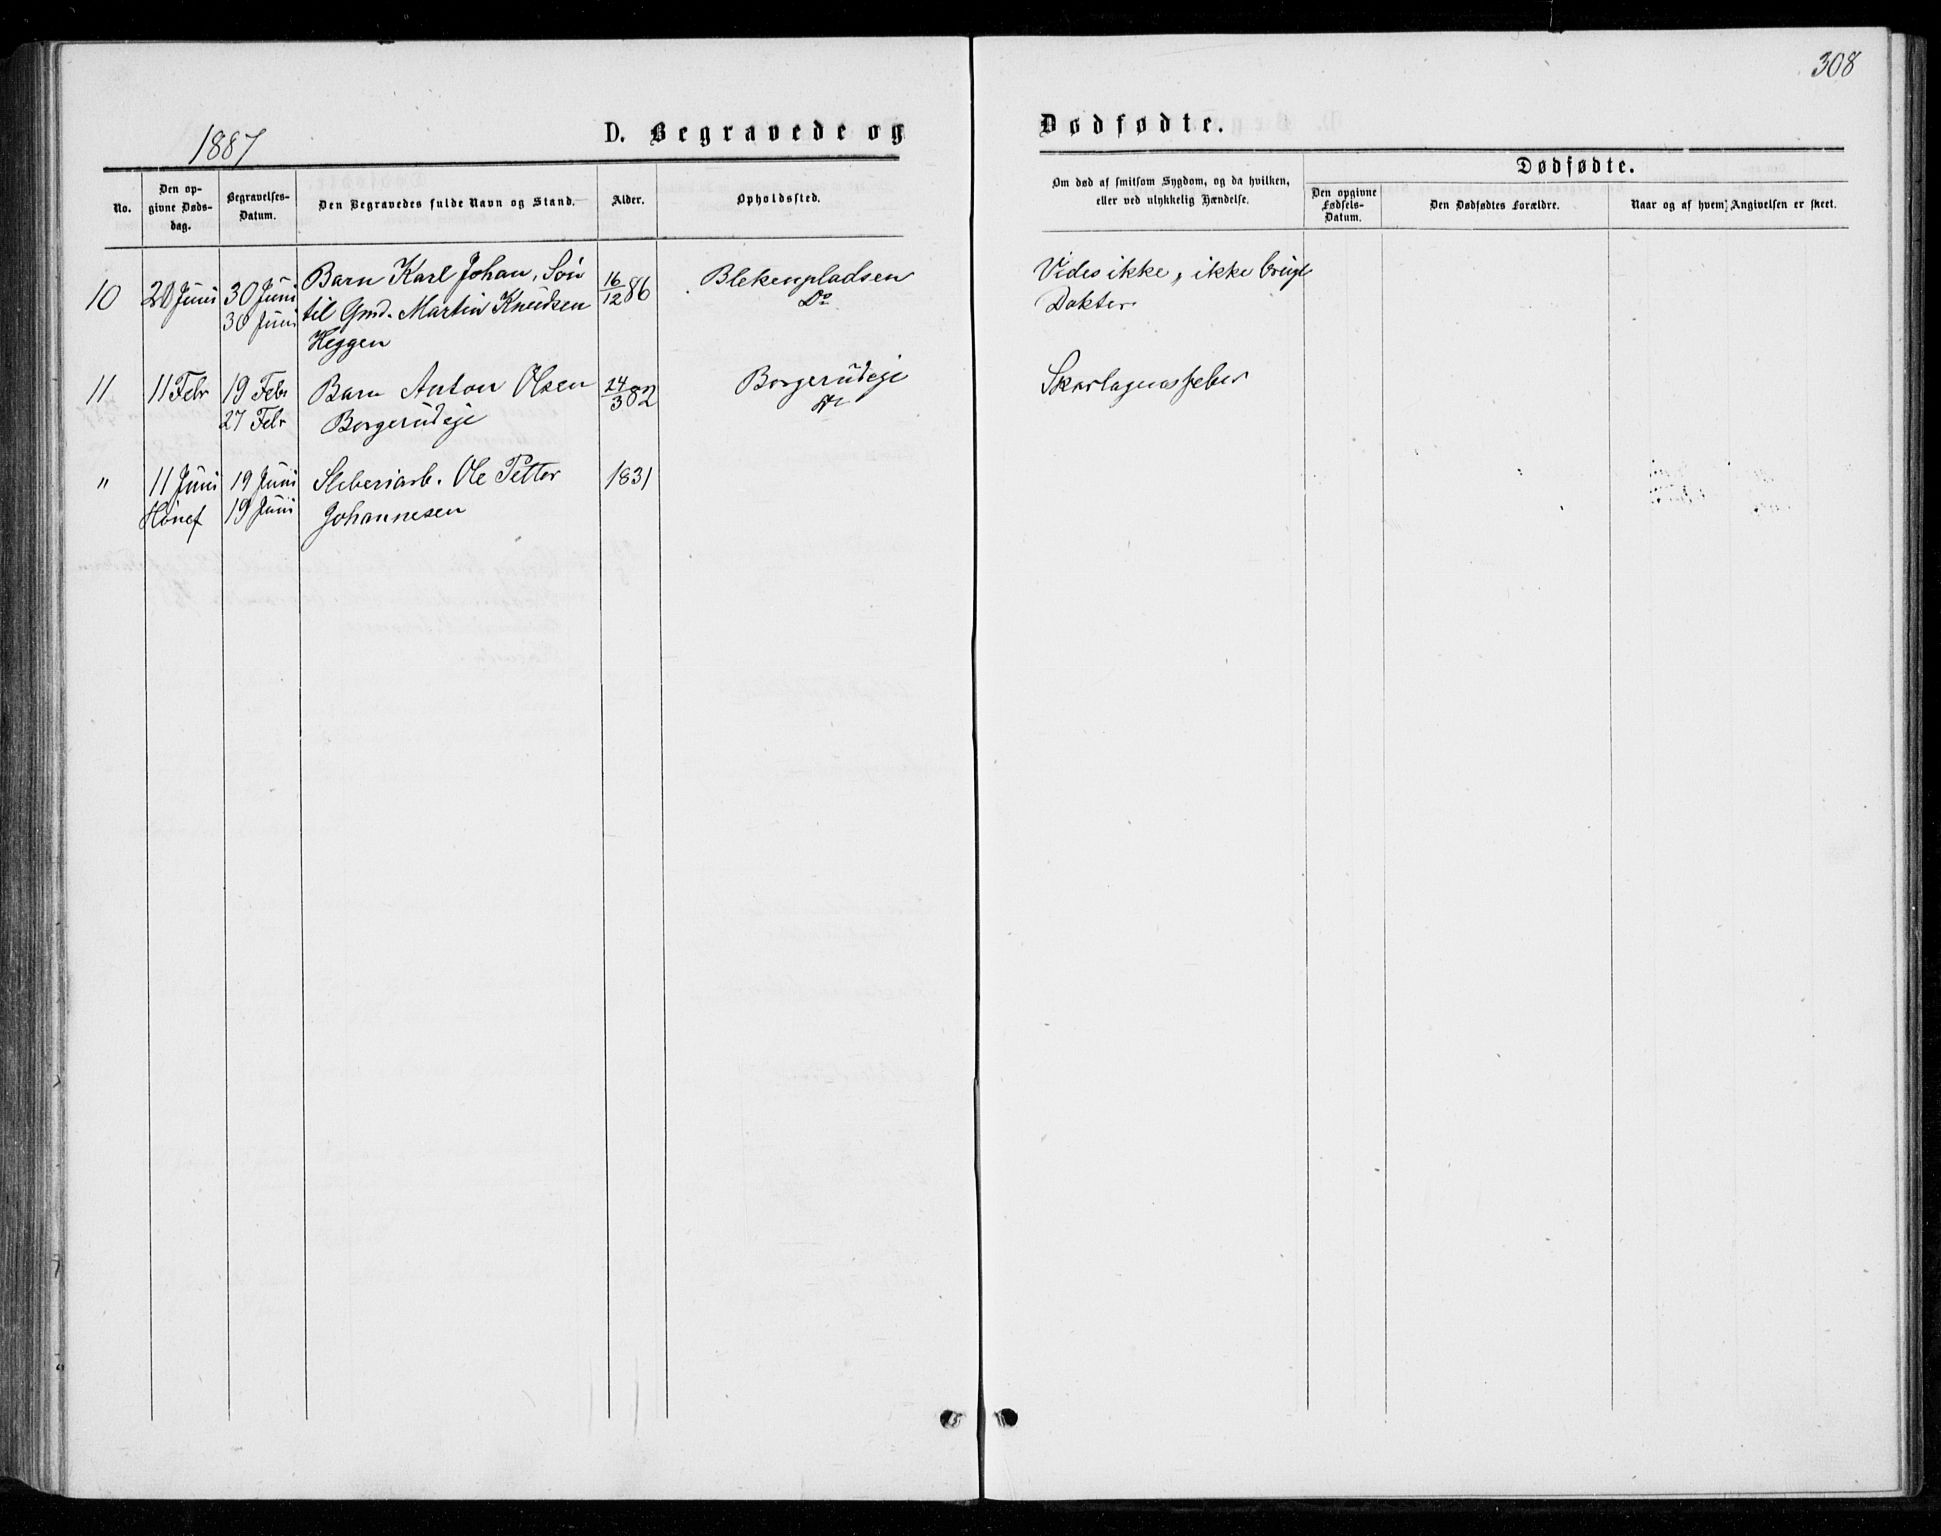 308
1887
D. Begravede og Dødfødte.
No.
Den opgivne Dødsdag.
Begravelses-Datum.
Den Begravedes fulde Navn og Stand.
Alder.
Opholdssted.
Om død af smitsom Sygdom, og da hvilken,
eller ved ulykkelig Hændelse.
Dødfødte.
Den opgivne Fødsels-Datum.
Den Dødfødtes Forældre.
Naar og af hvem Angivelsen er skeet.
10 20 Juni 30 Juni Barn Karl Johan, Søn 16/12 86 Blekenpladsen Vides ikke, ikke brugt
30 Juni til Gmd. Martin Knudsen Do Dokter
Heggen
11 11 Febr 19 Febr Barn Anton Olsen 24/3 82 Borgerudeje Skarlagensfeber
27 Febr Borgerudeje
" 11 Juni 19 Juni Sliberiarb. Ole Petter 1831
Hönef 19 Juni Johannesen